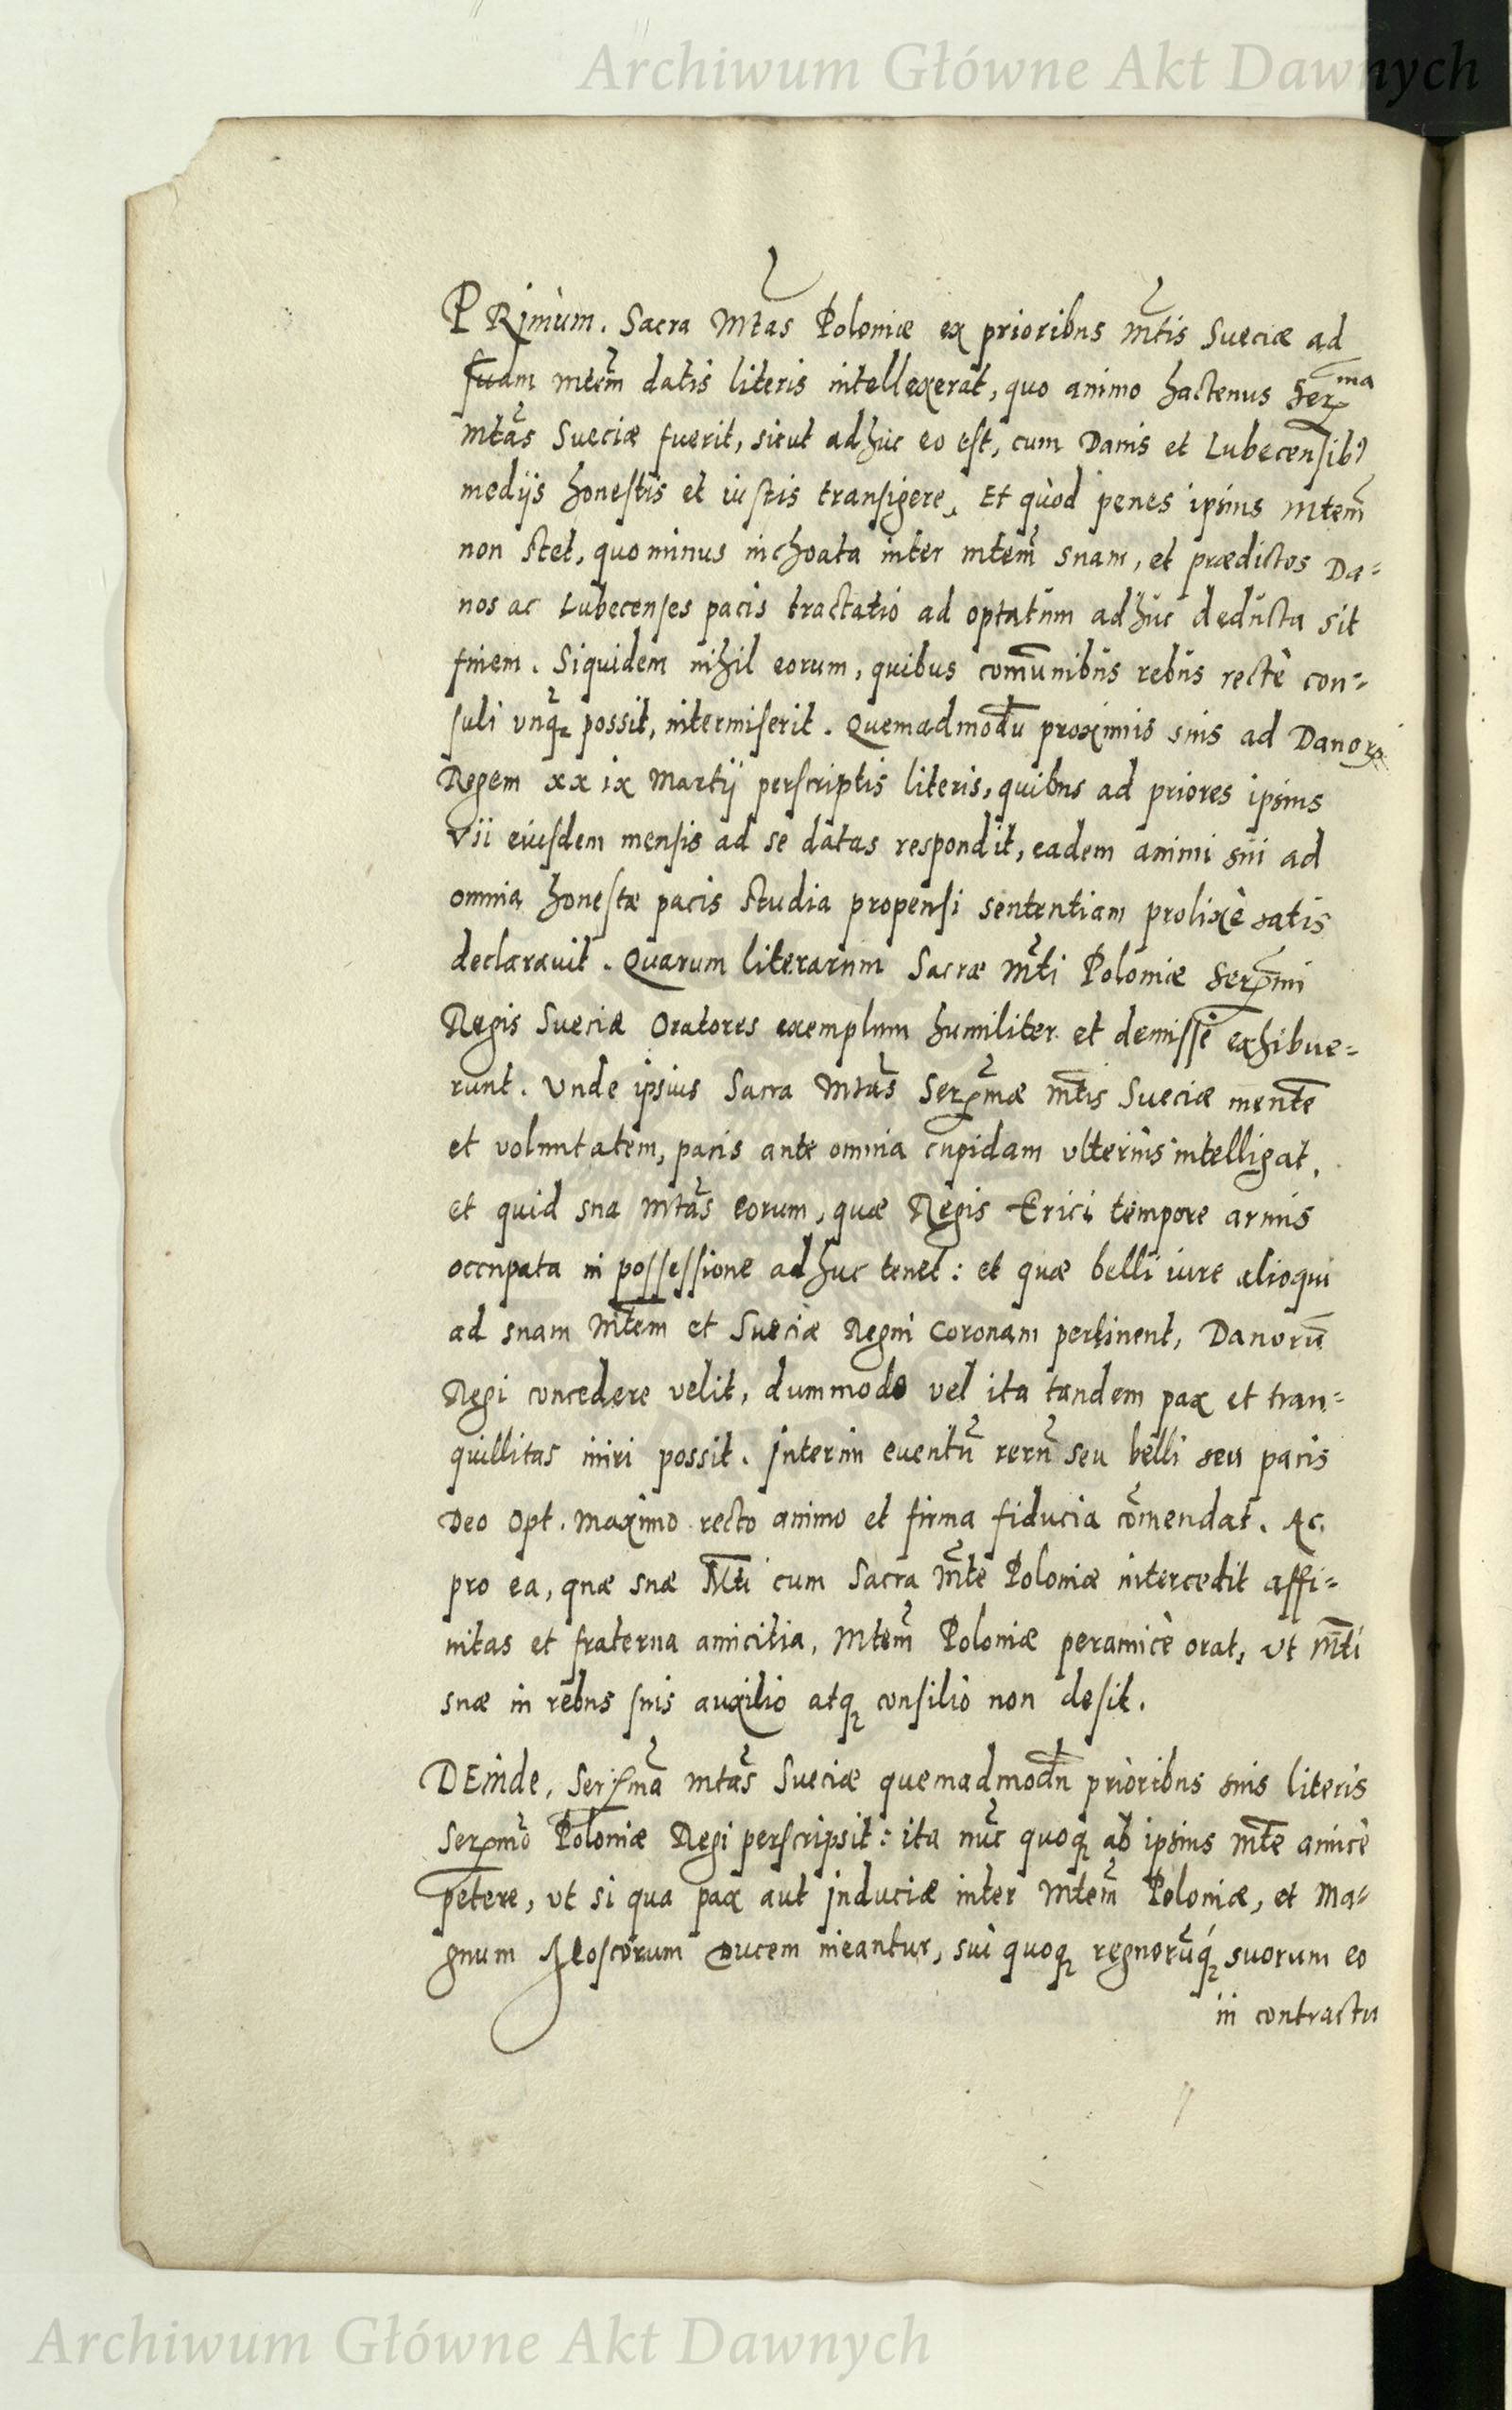 Archiwum Główne Akt Dawnych
PRimùm. Sacra Mtas Poloniæ ex prioribus Mtis Sueciæ ad
suam Mtem datis literis intellexerat, quo animo hactenus Serma
Mtas Sueciæ fuerit, sicut adhuc eo est, cum Danis et Lubecensib9
medijs honestis et iustis transigere, Et quòd penes ipsius Mtem
non stet, quominus inchoata inter Mtem suam, et prædictos Da=
nos ac Lubecenses pacis tractatio ad optatum adhuc deducta sit
finem. Siquidem nihil eorum, quibus comunibus rebus rectè con=
suli vnq possit, intermiserit. Quemadmodu proximis suis ad Danoꝝ
Regem xxix Martij perscriptis literis, quibus ad priores ipsius
vii eiusdem mensis ad se datas respondit, eadem animi sui ad
omnia honestæ pacis studia propensi sententiam prolixè satis
declarauit. Quarum literarum Sacræ Mti Poloniæ Sermi
Regis Sueciæ Oratores exemplum humiliter et demissè exhibue=
runt. Vnde ipsius Sacra Mtas Sermæ Mtis Sueciæ mente
et voluntatem, pacis ante omnia cupidam vlterius intelligat,
et quid sua Mtas eorum, quæ Regis Erici tempore armis
occupata in possessione adhuc tenet: et quæ belli iure alioqui
ad suam Mtem et Sueciæ Regni Coronam pertinent, Danorū
Regi concedere velit, dummodo vel ita tandem pax et tran=
quillitas iniri possit. Interim euentū rerū seu belli seu pacis
Deo Opt. Maximo recto animo et firma fiducia comendat. Ac
pro ea, quæ suæ Mti cum Sacra Mte Poloniæ intercedit affi=
nitas et fraterna amicitia, Mtem Poloniæ peramicè orat, vt Mti
suæ in rebus suis auxilio atq consilio non desit.
DEinde, Serma Mtas Sueciæ quemadmodu prioribus suis literis
Sermo Poloniæ Regi perscripsit: ita nuc quoq ab ipsius Mte amicè
petere, vt si qua pax aut induciæ inter Mtem Poloniæ, et Ma=
gnum Moscorum Ducem ineantur, sui quoq regnorūq suorum eo
in contractu
Archiwum Główne Akt Dawnych